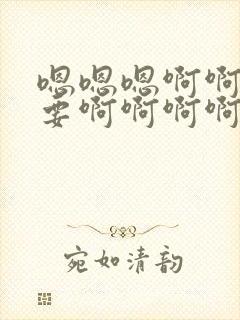 嗯嗯嗯啊啊
要啊啊啊啊
宛如清韵